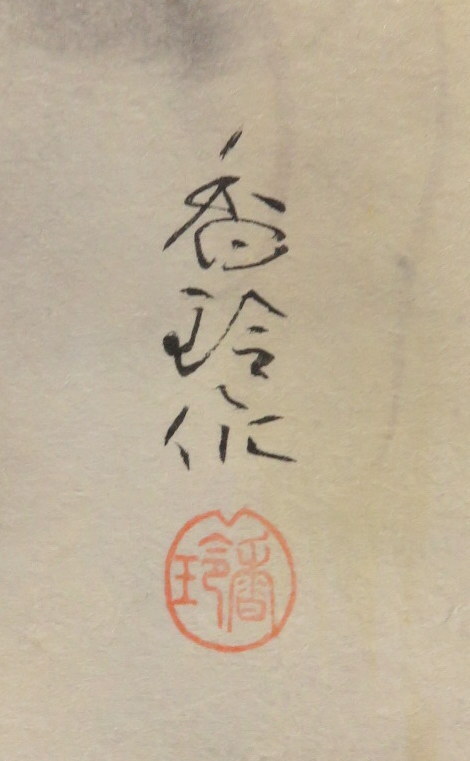 香玲作
香玲